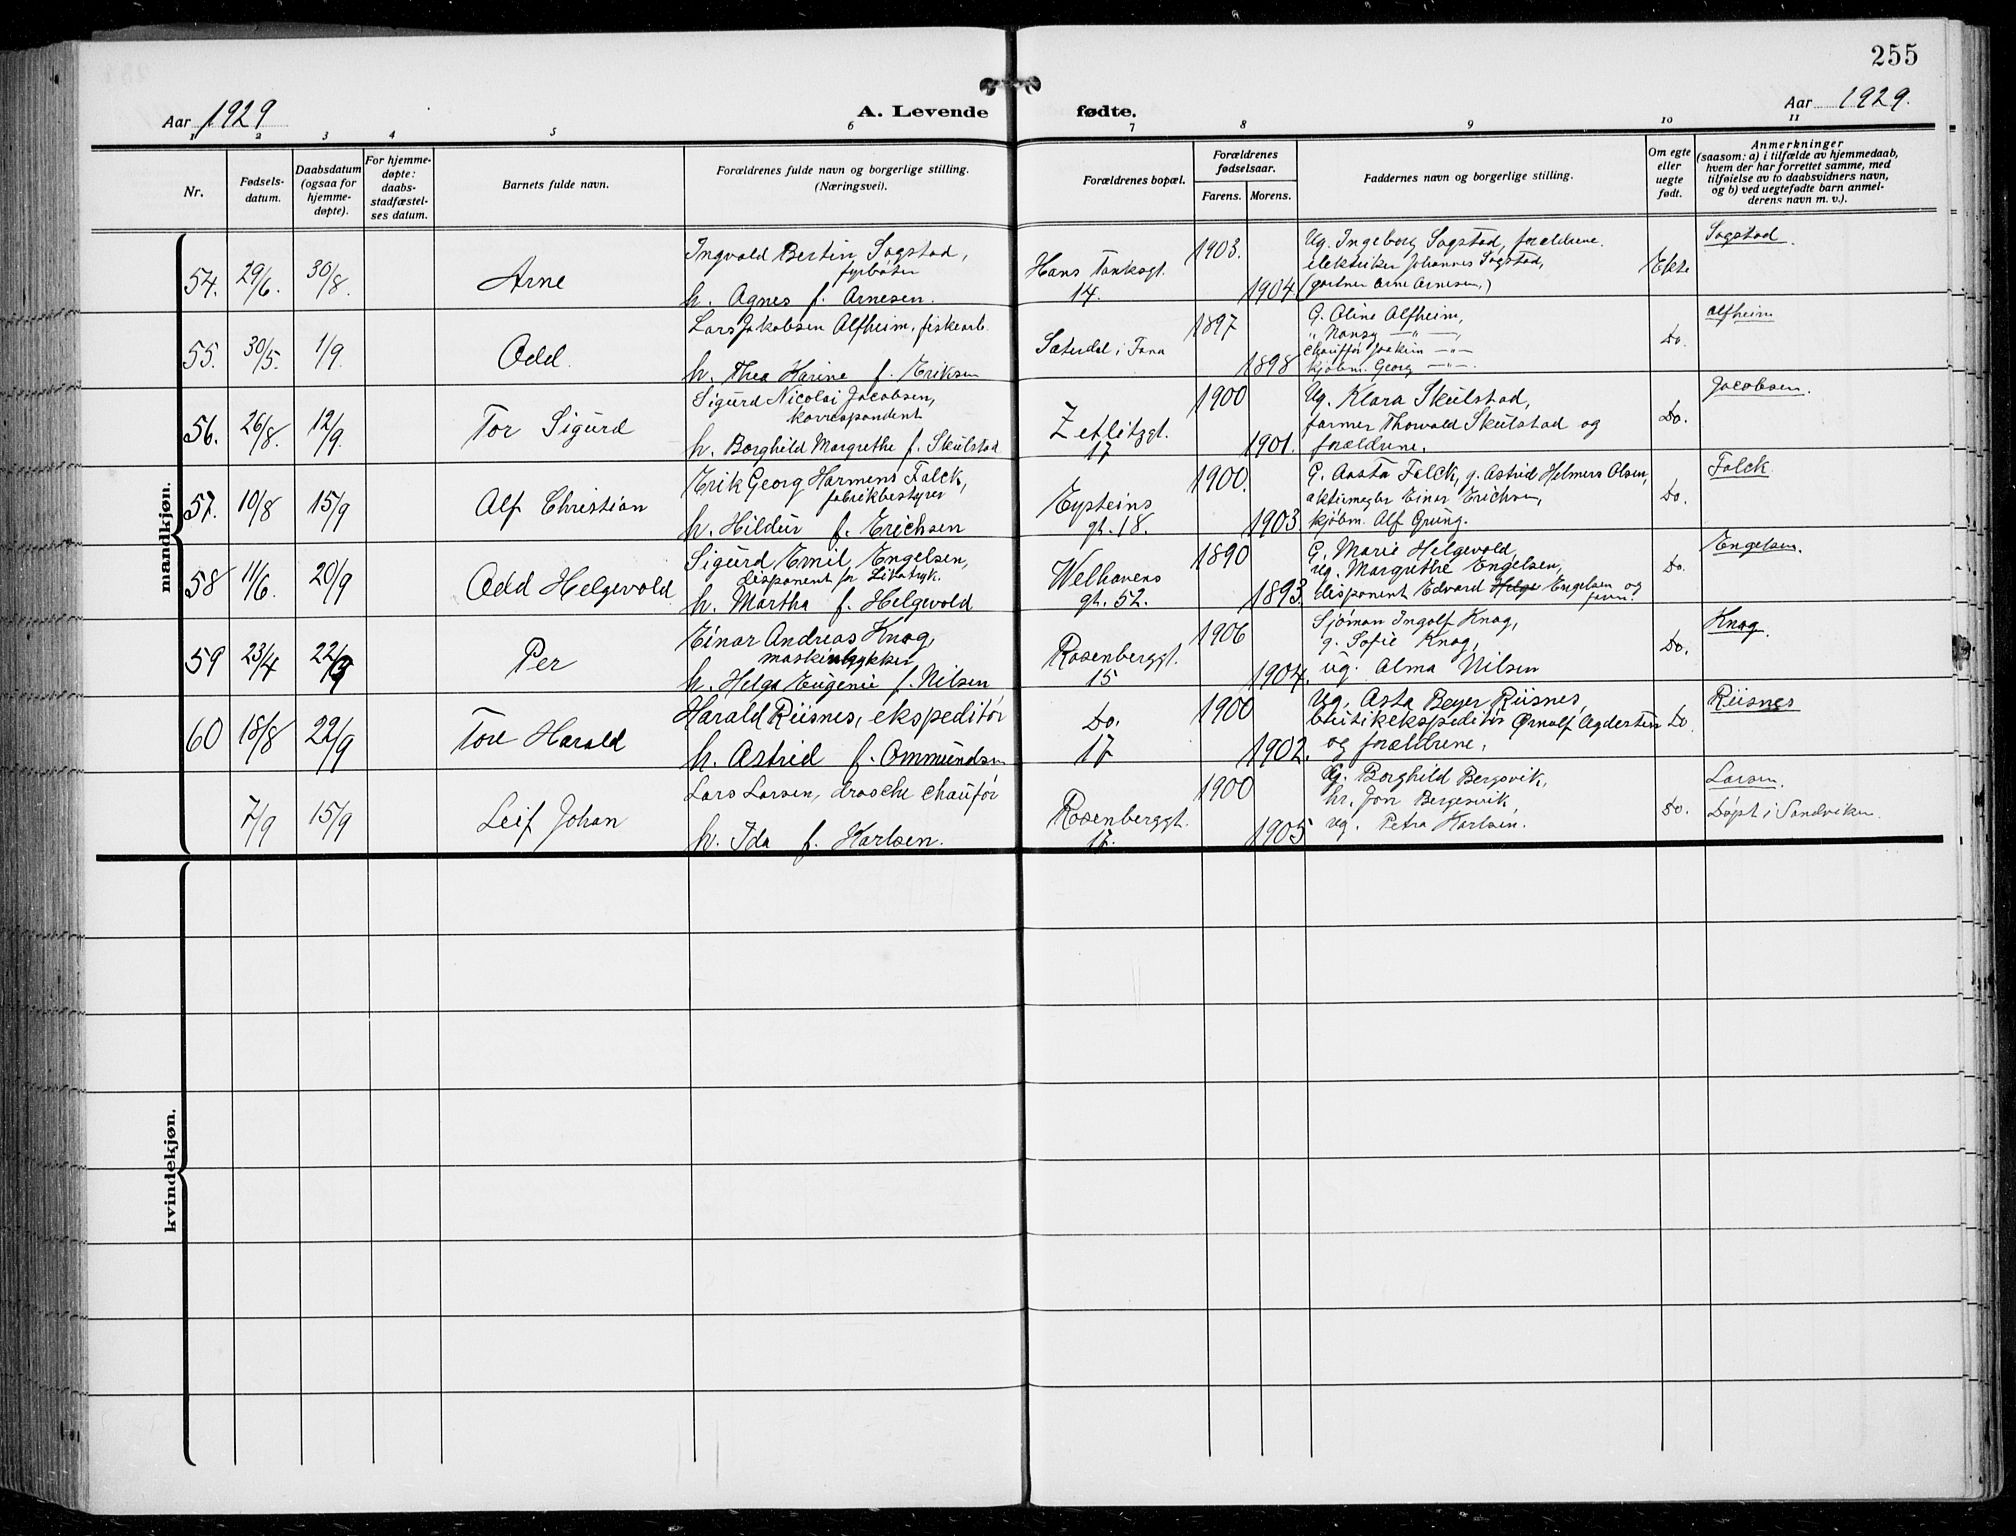 255
Aar 1929
A. Levende fødte.
Aar 1929.
1 2 3 4 5 6 7 8 9 10 11
Nr.
Fødsels-
datum.
Daabsdatum
(ogsaa for
hjemme-
døpte).
For hjemme-
døpte:
daabs-
stadfæstel-
ses datum.
Barnets fulde navn.
Forældrenes fulde navn og borgerlige stilling.
(Næringsvei).
Forældrenes bopæl.
Forældrenes
fødselsaar.
Farens. Morens.
Faddernes navn og borgerlige stilling.
Om egte
eller
uegte
født.
Anmerkninger
(saasom: a) i tilfælde av hjemmedaab,
hvem der har forrettet samme, med
tilføielse av to daabsvidners navn,
og b) ved uegtefødte barn anmel-
derens navn m. v.).
mandkjøn.
54. 29/6. 30/8. Arne
Ingvald Bertin Sagstad,
fyrbøter
h. Agnes f. Arnesen.
Hans Tanksgt.
14.
1903. 1904
Ug. Ingeborg Sagstad, forældrene.
elektriker Johannes Sagstad,
(gartner Arne Arnesen,)
Ekte
Sagstad.
55. 30/5. 1/9. Odd.
Lars Jakobsen Alfheim, fiskearb.
h. Thea Karine f. Eriksen
Sæterdal i Tana
1897 1898
G. Oline Alfheim,
" Nansy —"—,
Chauffør Joakim —"—
kjøbm. Georg —"—.
Do.
Alfheim
56. 26/8. 12/9. Tor Sigurd
Sigurd Nicolai Jacobsen,
korrespondent
h. Borghild Margrethe f. Skulstad
Zetlitzgt.
17
1900 1901.
Ug. Klara Skulstad,
farmer Thorvald Skulstad og
forældrene.
Do.
Jacobsen.
57. 10/8 15/9 Alf Christian
Erik Georg Harmens Falck,
fabrikbestyrer
h. Hildur f. Erichsen
Eysteins
gt. 18.
1900. 1903
G. Aasta Falck, g. Astrid Helmers Olsen,
aktiemegler Einar Erichsen,
kjøbm. Alf Grung.
Do.
Falck.
58 11/6. 20/9 Odd Helgevold
Sigurd Emil Engelsen,
disponent for
h. Martha f. Helgevold
Welhavens
gt. 52.
1890 1893.
G. Marie Helgevold,
ug. Margrethe Engelsen,
disponent Edvard Helge Engelsen og
faren.
Do.
Engelsen.
59 23/4 22/9 Per
Einar Andreas Knag,
maskintrykker
h. Helga Eugenie f. Nilsen
Rosenberggt.
15
1906 1904.
Sjøman Ingolf Knag,
g. Sofie Knag,
ug. Alma Nilsen
Do.
Knag.
60 18/8 22/9 Tore Harald
Harald Riisnes, ekspeditør
h. Astrid f. Ommundsen
Do.
17
1900 1902.
Ug. Asta Beyer Riisnes,
butikekspeditør Ørnulf Agdersten
og forældrene.
Do
Riisnes
7/9 15/9 Leif Johan
Lars Larsen, drosche chaufør
h. Ida f. Karlsen.
Rosenberggt.
17.
1900 1905
Ug. Borghild Bergsvik,
hr. Jon Bergesvik,
ug. Petra Karlsen.
Do.
Larsen.
Døpt i Sandviken
kvindekjøn.